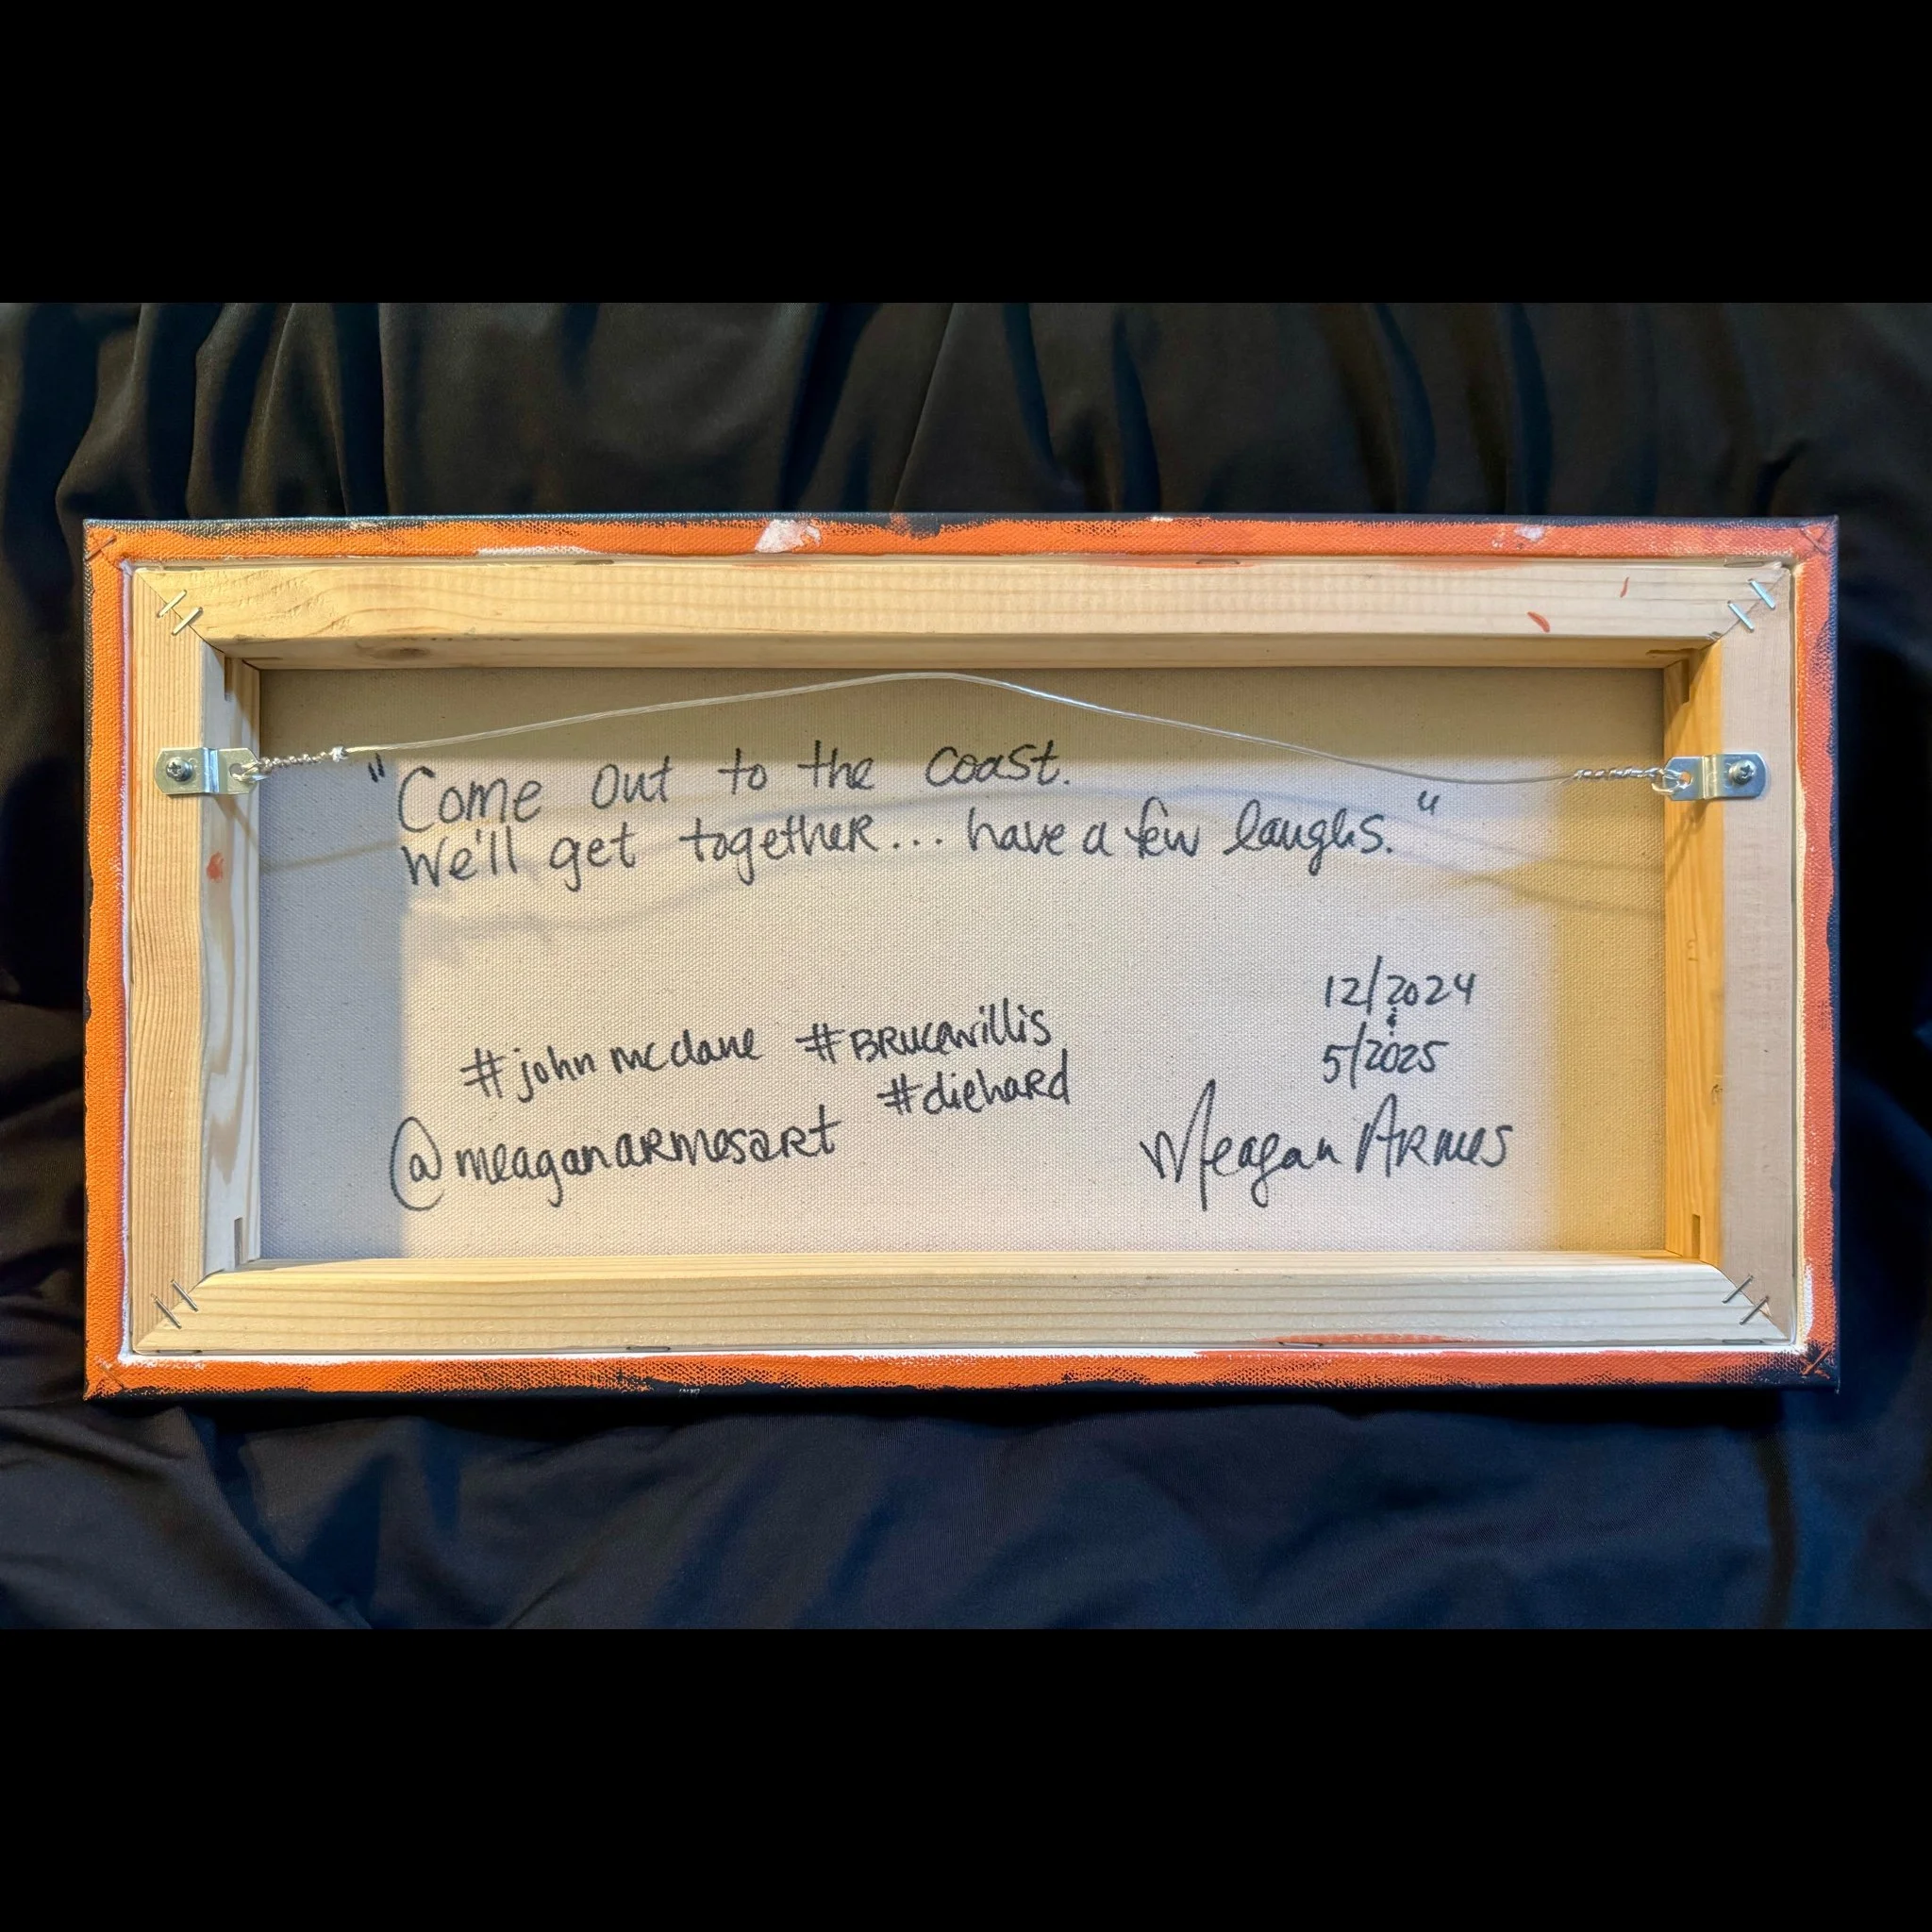 "Come out to the coast.
We'll get together... have a few laughs."
12/2024
&
5/2025
#john mcclane #BRUCEwillis
#diehard
@meaganarmesart
Meagan Armes